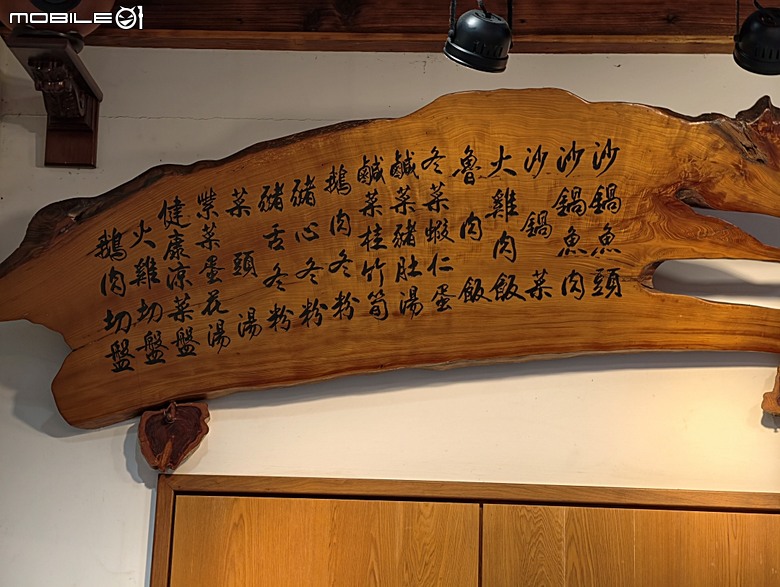 MOBILE01
沙鍋魚頭
沙鍋魚肉
沙鍋菜
火雞肉飯
魯肉飯
冬菜蝦仁蛋
鹹菜豬肚湯
鹹菜桂竹筍
鵝肉冬粉
豬心冬粉
豬舌冬粉
菜頭湯
紫菜蛋花湯
健康凉菜盤
火雞切盤
鵝肉切盤